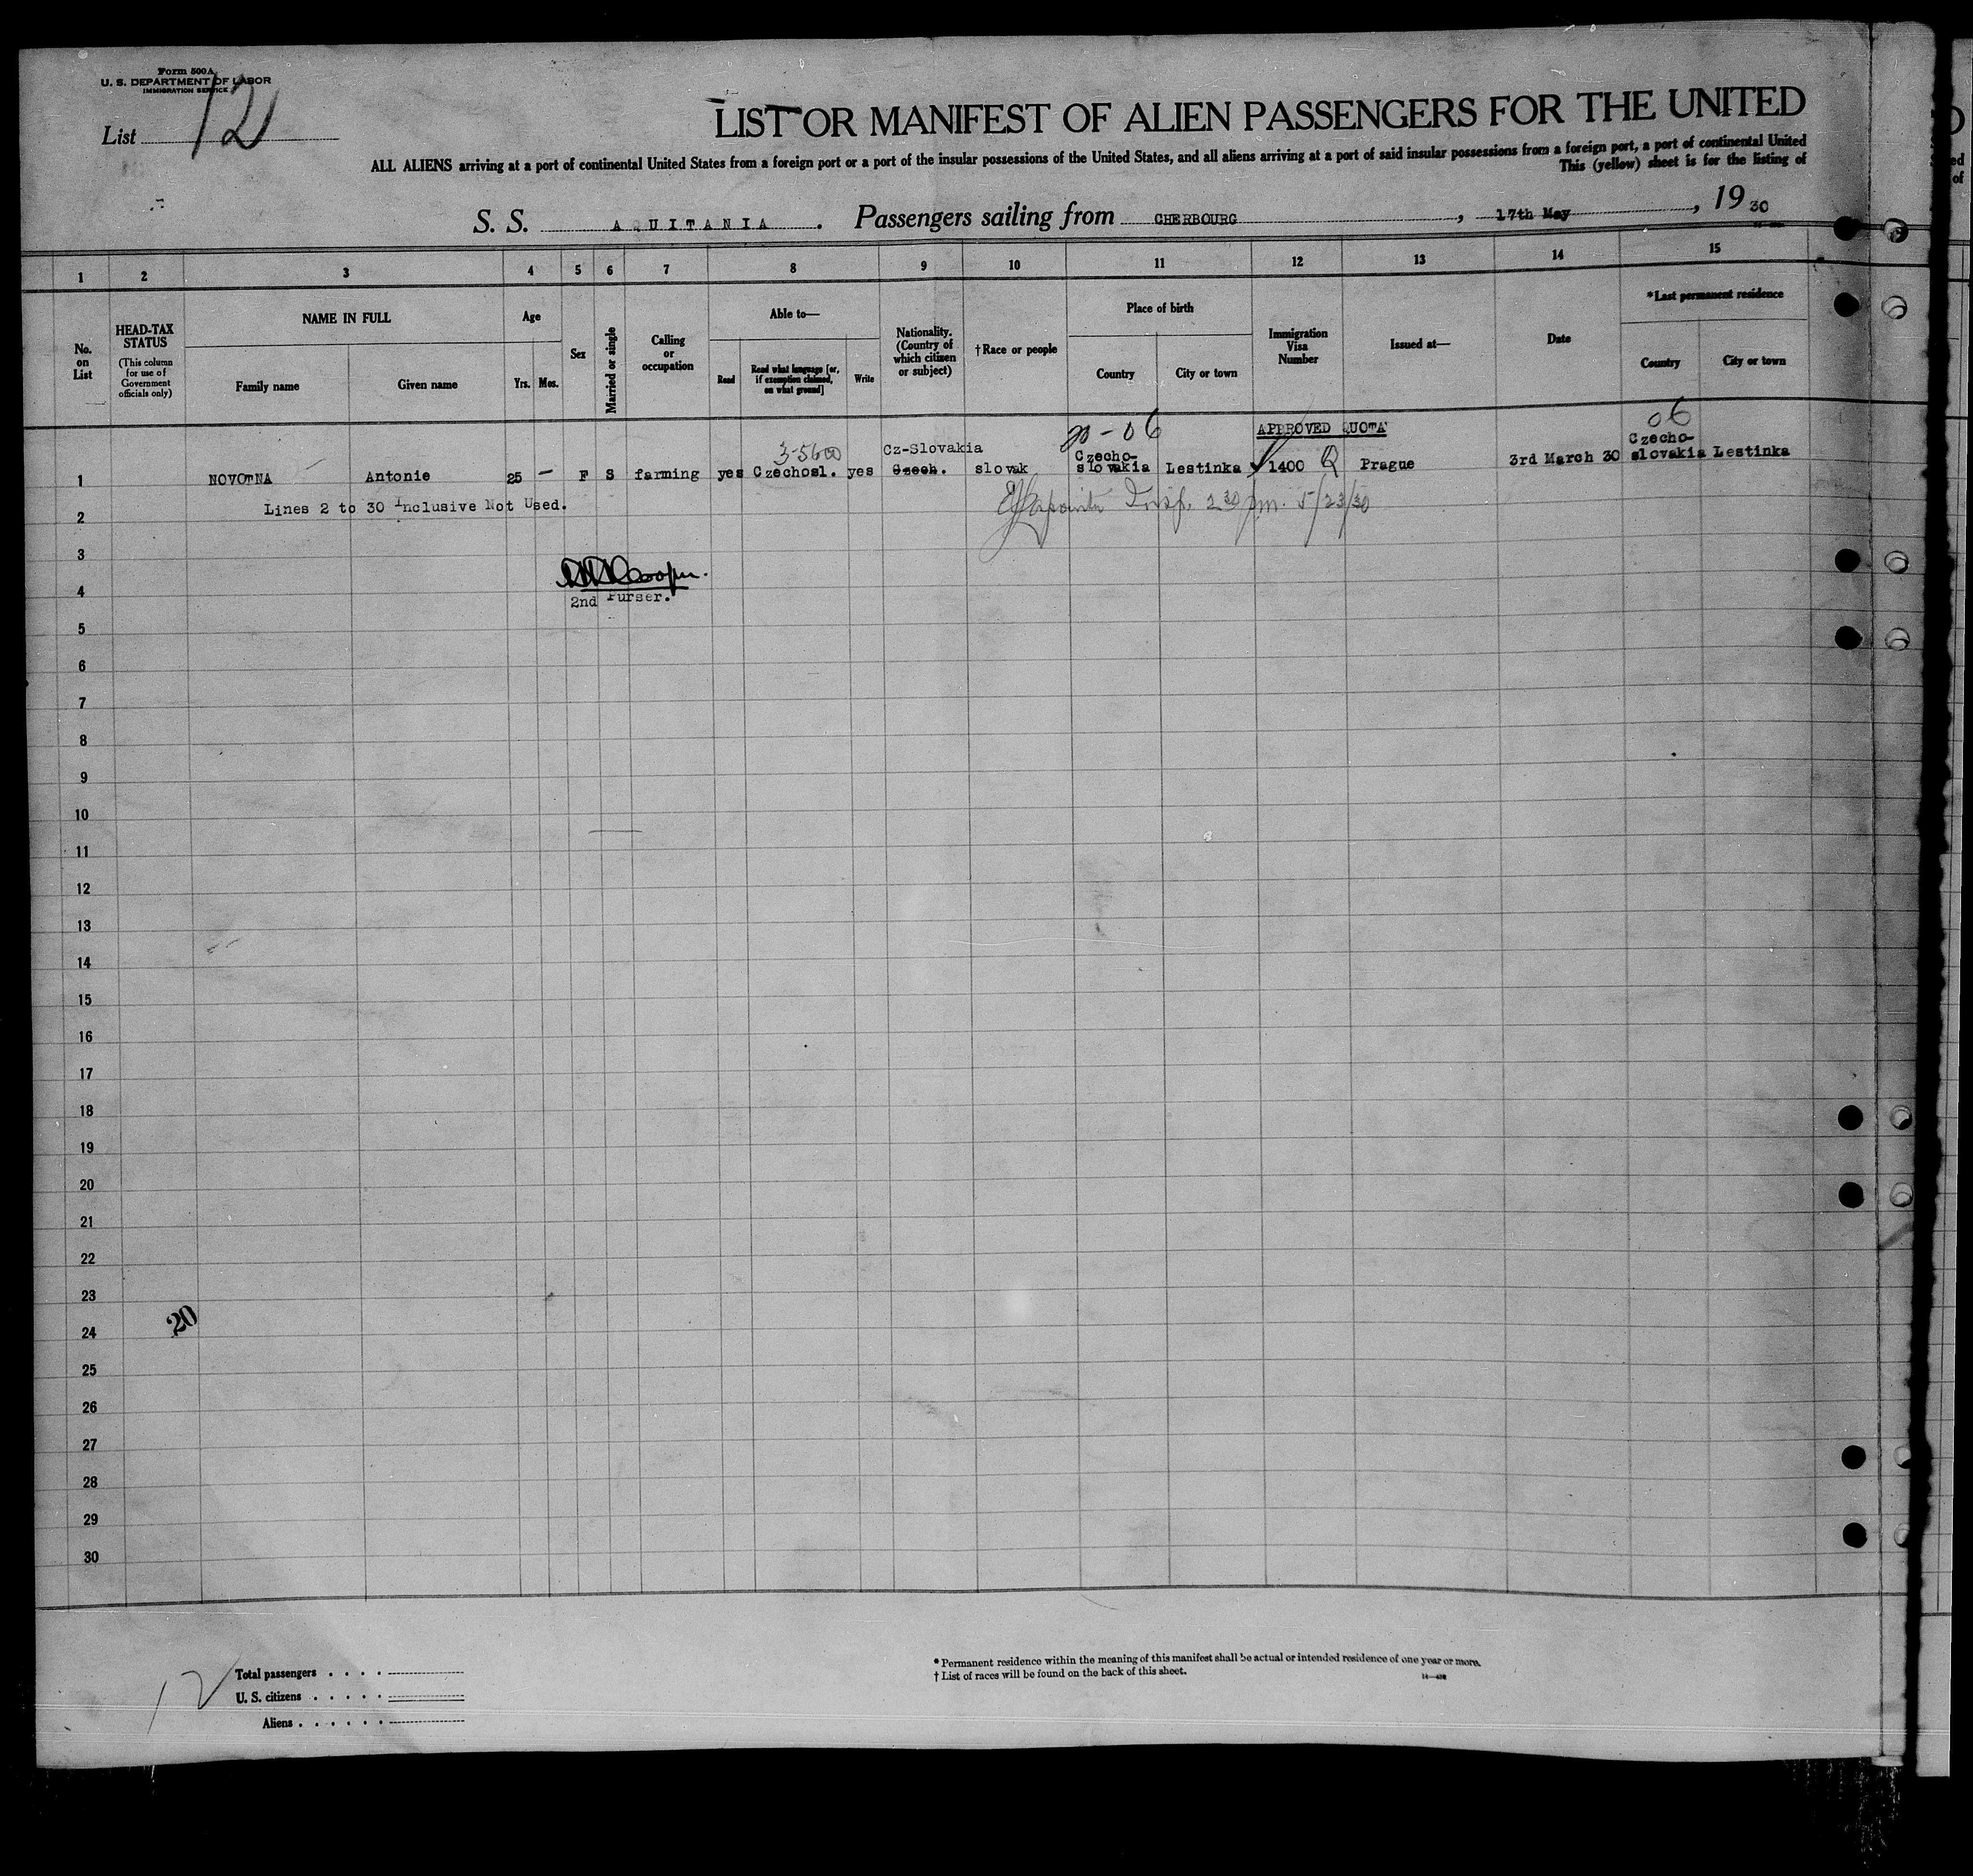 Form 500A
U. S. DEPARTMENT OF LABOR
IMMIGRATION SERVICE
List 12
LIST OR MANIFEST OF ALIEN PASSENGERS FOR THE UNITED
ALL ALIENS arriving at a port of continental United States from a foreign port or a port of the insular possessions of the United States, and all aliens arriving at a port of said insular possessions from a foreign port, a port of continental United
This (yellow) sheet is for the listing of
S. S. AQUITANIA. Passengers sailing from CHERBOURG, 17th May, 19 30
1 2 3 4 5 6 7 8 9 10 11 12 13 14 15
No. on List
HEAD-TAX STATUS
(This column for use of Government officials only)
NAME IN FULL
Family name Given name
Age
Yrs. Mos.
Sex
Married or single
Calling or occupation
Able to—
Read
Read what language [or, if exemption claimed, on what ground]
Write
Nationality. (Country of which citizen or subject)
†Race or people
Place of birth
Country City or town
Immigration Visa Number
Issued at—
Date
*Last permanent residence
Country City or town
3-5600 Cz-Slovakia 06 APPROVED QUOTA 06
1 NOVOTNA Antonie 25 — F S farming yes Czechosl. yes Czech. slovak Czecho-slovakia Lestinka 1400 Q Prague 3rd March 30 Czecho-slovakia Lestinka
2 Lines 2 to 30 Inclusive Not Used. Insp. 2 30 pm. 5/23/30
3
4 2nd Purser.
5
6
7
8
9
10
11
12
13
14
15
16
17
18
19
20
21
22
23
20
24
25
26
27
28
29
30
12
Total passengers . . . .
U. S. citizens . . . . .
Aliens . . . . . .
* Permanent residence within the meaning of this manifest shall be actual or intended residence of one year or more.
† List of races will be found on the back of this sheet.